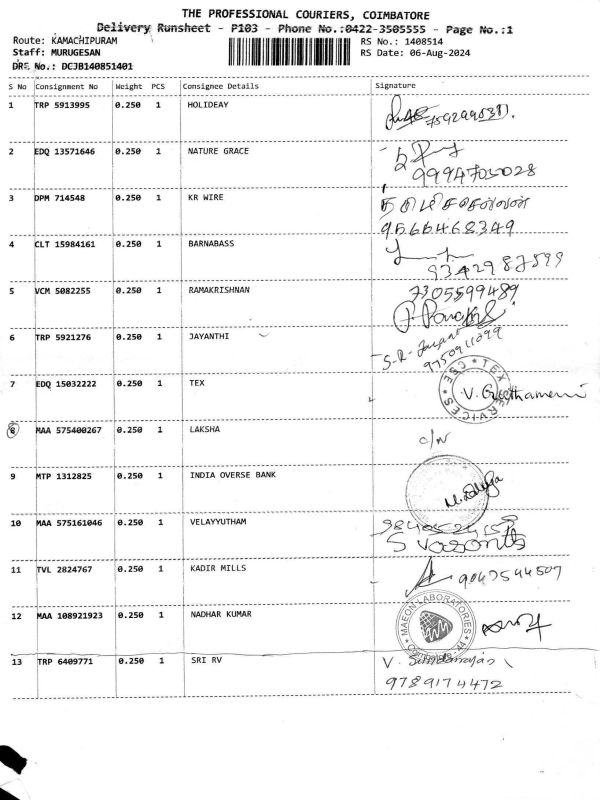 THE PROFESSIONAL COURIERS, COIMBATORE
Delivery Runsheet - P103 - Phone No.:0422-3505555 - Page No.:1
Route: KAMACHIPURAM RS No.: 1408514
Staff: MURUGESAN RS Date: 06-Aug-2024
DRS No.: DCJB140851401
S No Consignment No Weight PCS Consignee Details Signature
1 TRP 5913995 0.250 1 HOLIDEAY
2 EDQ 13571646 0.250 1 NATURE GRACE
9994705028
3 DPM 714548 0.250 1 KR WIRE
9566468349
4 CLT 15984161 0.250 1 BARNABASS
5 VCM 5082255 0.250 1 RAMAKRISHNAN 7305599489
6 TRP 5921276 0.250 1 JAYANTHI
9750911099
7 EDQ 15032222 0.250 1 TEX TEX SERVICES CBE V. Geethamani
8 MAA 575400267 0.250 1 LAKSHA
9 MTP 1312825 0.250 1 INDIA OVERSE BANK
10 MAA 575161046 0.250 1 VELAYYUTHAM
11 TVL 2824767 0.250 1 KADIR MILLS 9047544507
12 MAA 108921923 0.250 1 NADHAR KUMAR MAEON LABORATORIES
13 TRP 6409771 0.250 1 SRI RV V.
9789174472